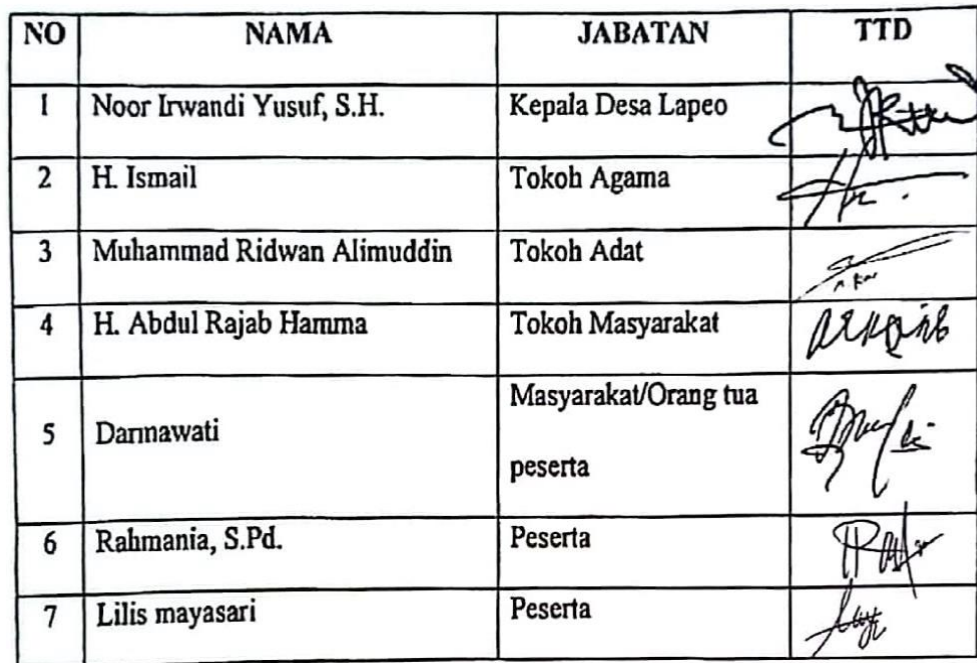 NO NAMA JABATAN TTD
1 Noor Irwandi Yusuf, S.H. Kepala Desa Lapeo
2 H. Ismail Tokoh Agama
3 Muhammad Ridwan Alimuddin Tokoh Adat
4 H. Abdul Rajab Hamma Tokoh Masyarakat
5 Darmawati Masyarakat/Orang tua
peserta
6 Rahmania, S.Pd. Peserta
7 Lilis mayasari Peserta